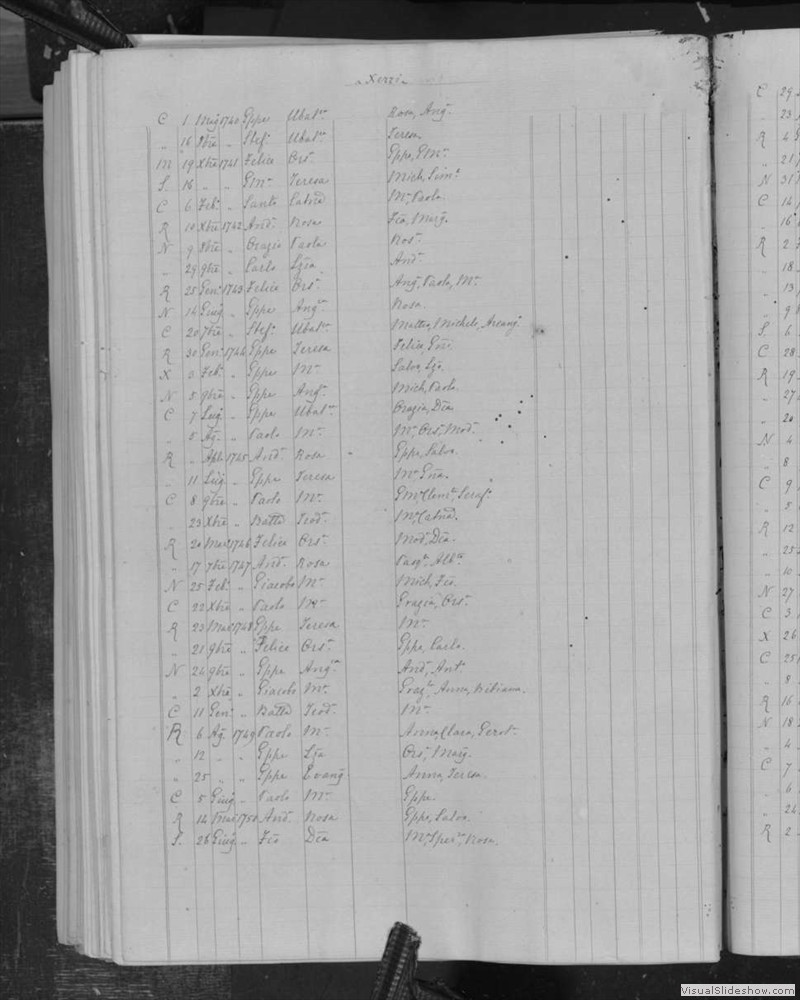 Xerri
C 1 Mag 1740 Gppe Ubal.ª Rosa, Ang.
„ 16 8bre „ Stef. Ubal.ª Teresa
M 19 Xbre 1741 Felice Ors.ª Gppe, G M.ª
S. 16 „ „ G M.ª Teresa Mich, Sim.ª
C 6 Feb. „ Santo Catna M.ª Paola
R 10 Xbre 1742 And. Rosa Fca, Marg.
N 9 8bre „ Orazio Paola Ros.ª
„ 29 9bre „ Carlo And.
R 25 Gen. 1743 Felice Ors.ª Ang. Paolo, M.ª
N 14 Giug „ Gppe Ang.ª Rosa
C 20 7bre „ Stef. Ubal.ª Matteo, Michele, Arcang.
R 30 Gen. 1744 Gppe Teresa Felice
X 3 Feb. „ Gppe M.ª Salva
N 5 9bre „ Gppe Ang.ª Mich, Paolo
C 7 Lug „ Gppe Ubal.ª Grazia, Dca
„ 5 Ag. „ Paolo M.ª M.ª Ors.ª Mod.
R „ Aple 1745 And. Rosa Gppe, Salva
„ 11 Lug „ Gppe Teresa M.ª
C 8 9bre „ Paolo M.ª G M. Clem.ª Seraf.
„ 23 Xbre „ Batta Teod. M.ª Catna
R 20 Mar 1746 Felice Ors.ª Mod. Dca
„ 17 7bre 1747 And. Rosa
N 25 Feb. „ Giacobo M.ª Mich, Fco
C 22 Xbre „ Paolo M.ª Grazia, Ors.ª
R 23 Mar 1748 Gppe Teresa M.ª
„ 21 9bre „ Felice Ors.ª Gppe, Carlo
N 24 9bre „ Gppe Ang.ª And. Ant.ª
„ 2 Xbre „ Giacobo M.ª Anna, Bibiana
C 11 Gen. „ Batta Teod. M.ª
R 6 Ag. 1749 Paolo M.ª Anna, Clara
„ 12 „ „ Gppe Ors.ª Marg.
„ 25 „ „ Gppe Evang Anna, Teresa
C 5 Giug „ Paolo M.ª Gppe
R 14 Mar 1750 And. Rosa Gppe, Salva
S. 26 Giug „ Fco Dca M.ª Sper.ª Rosa
C 29
„ 23
R 6
„ 21
N 31
C 14
„ 16
R 2
„ 18
„ 13
„ 9
S. 6
C 28
R 19
„ 27
„ 20
N 4
„ 8
C 9
„ 5
R 12
„ 25
„ 10
N 27
C 3
X 26
C 25
„ 8
R 16
N 18
„ 4
C 7
„ 6
„ 24
R 2
VisualSlideshow.com